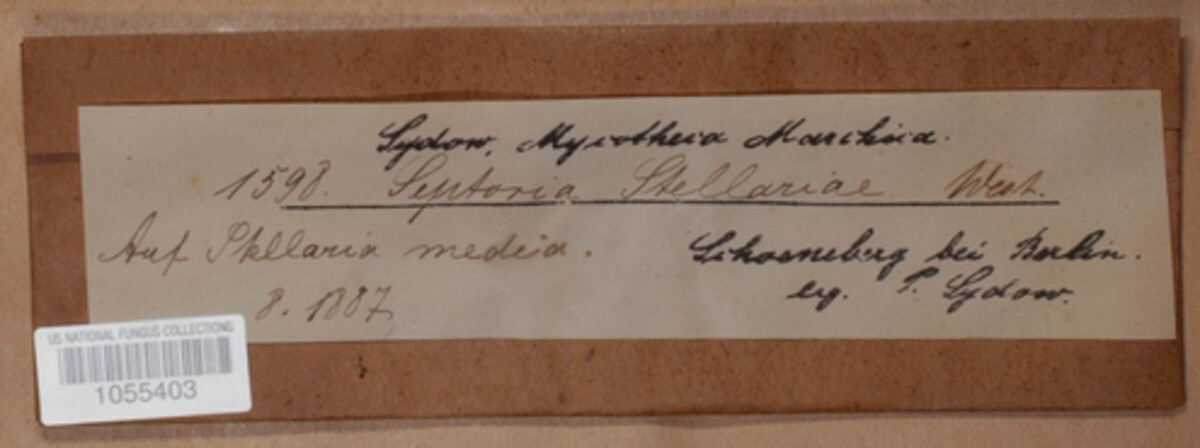 Sydow, Mycotheca Marchica.
1598. Septoria Stellariae West.
Auf Stellaria media.
Schoeneberg bei Berlin.
8. 1887
leg. P. Sydow.
US NATIONAL FUNGUS COLLECTIONS
1055403